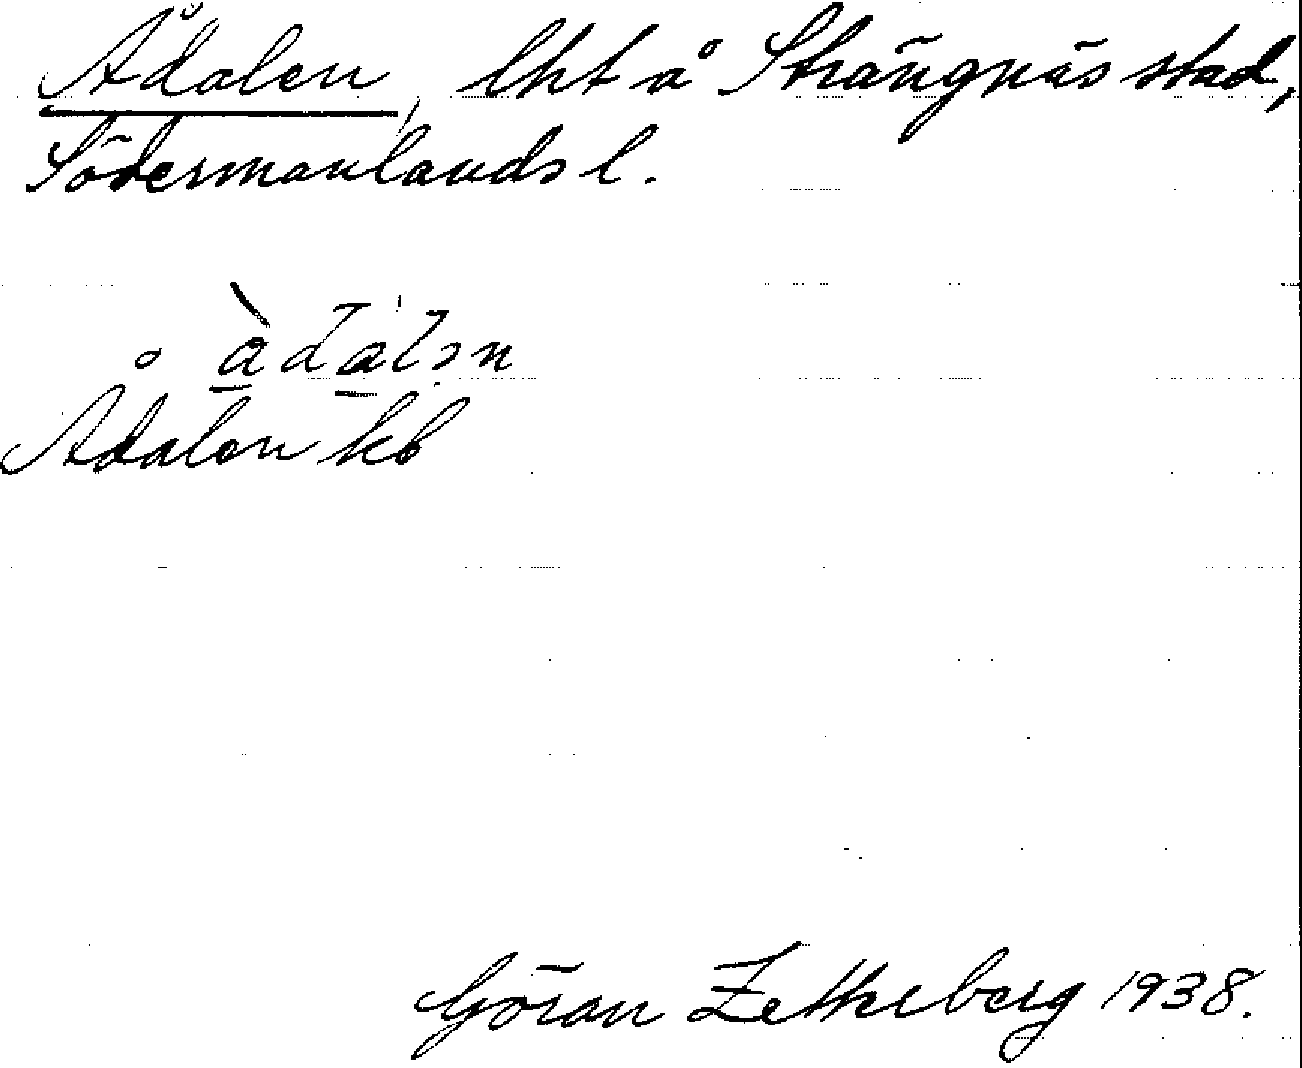 Ådalen, lht å Strängnäs stad,
Södermanlands l.
Ådalen kb
Göran Zetterberg 1938.